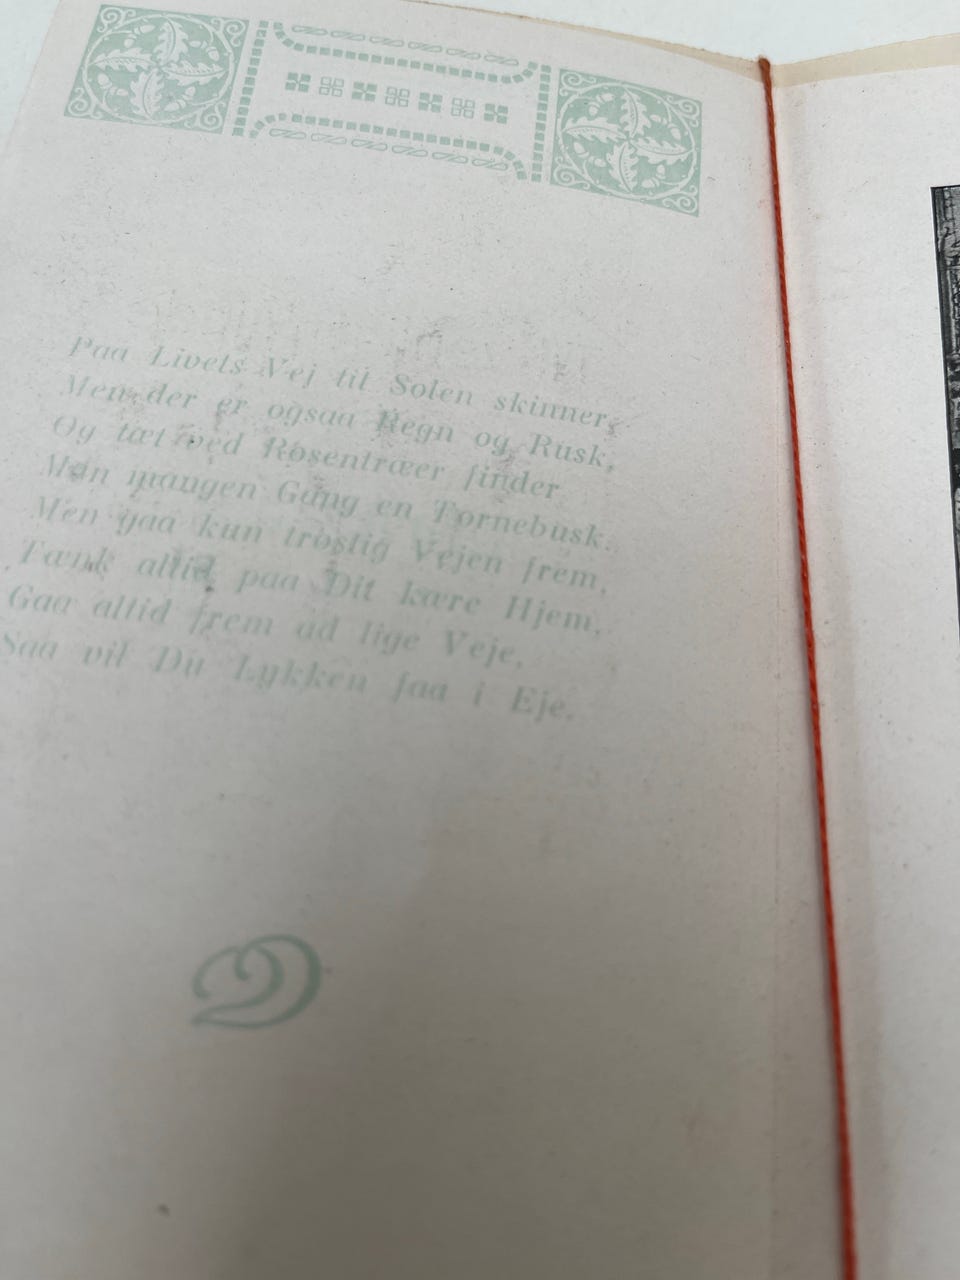 Paa Livets Vej til Solen skinner,
Men der er ogsaa Regn og Rusk,
Og tæt ved Rosentræer finder
Man mangen Gang en Tornebusk.
Men gaa kun trøstig Vejen frem,
Tænk altid paa Dit kære Hjem,
Gaa altid frem ad lige Veje,
Saa vil Du Lykken faa i Eje.